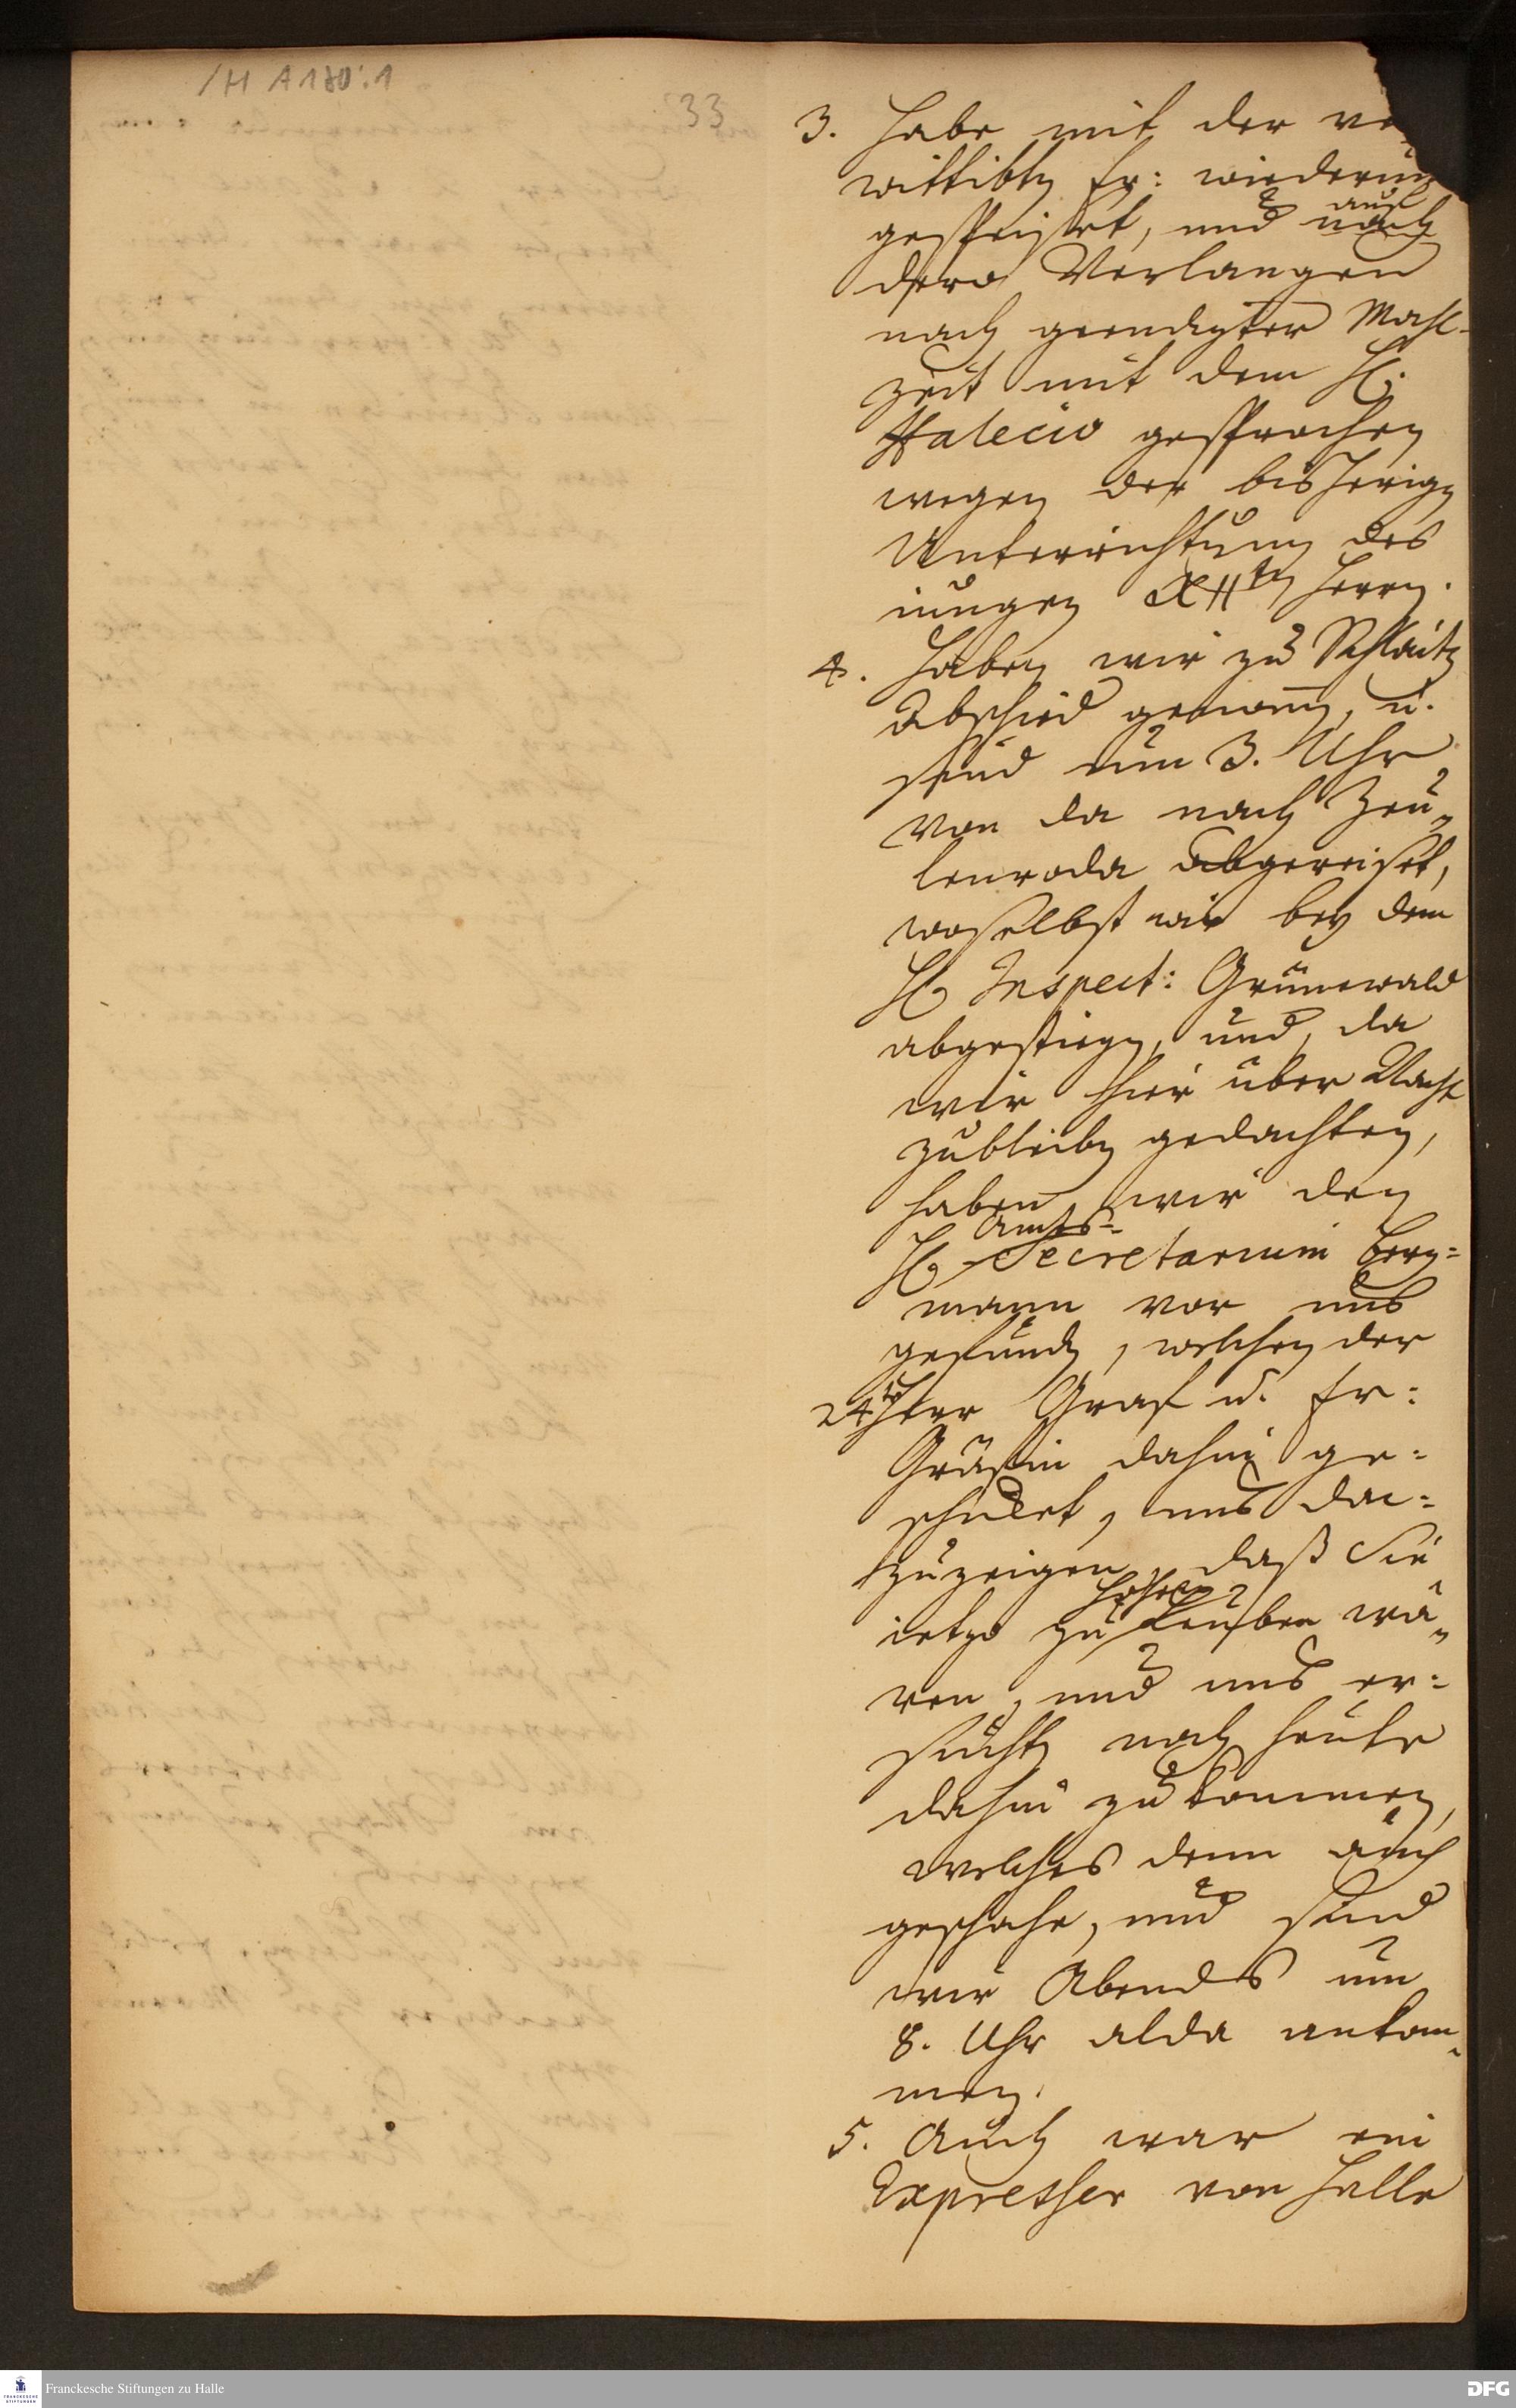 /H A 180:1
33
3. Habe mit der ve
wittibten Fr: wiederum
gespeiset, und nach
auf
dero Verlangen
nach geendigter Mahl-
zeit mit dem H.
Halecio gesprochen
wegen der bisherigen
Unterrichtung des
jungen XIIten Herrn.
4. Haben wir zu Schlaitz
Abschied genommen, u.
sind um 3. Uhr
von da nach Zeu-
lenroda abgereiset,
woselbst wir bey dem
H. Inspect: Grünewald
abgestiegen, und, da
wir hier über Nacht
zubleiben gedachten,
haben wir den
Amts-
H. Secretarium Berg=
mann vor uns
gefunden, welchen der
24te Herr Graf u. Fr:
Gräfin dahin ge=
schickt, uns
zuzeigen, daß Sie
Hohen
ietzo zu Leuben wä-
ren, und uns er=
suchten noch heute
dahin zu kommen,
welches denn auch
geschahe, und sind
wir Abends um
8. Uhr alda ankom-
men.
5. Auch war ein
Expresser von Halle
Franckesche Stiftungen zu Halle
DFG